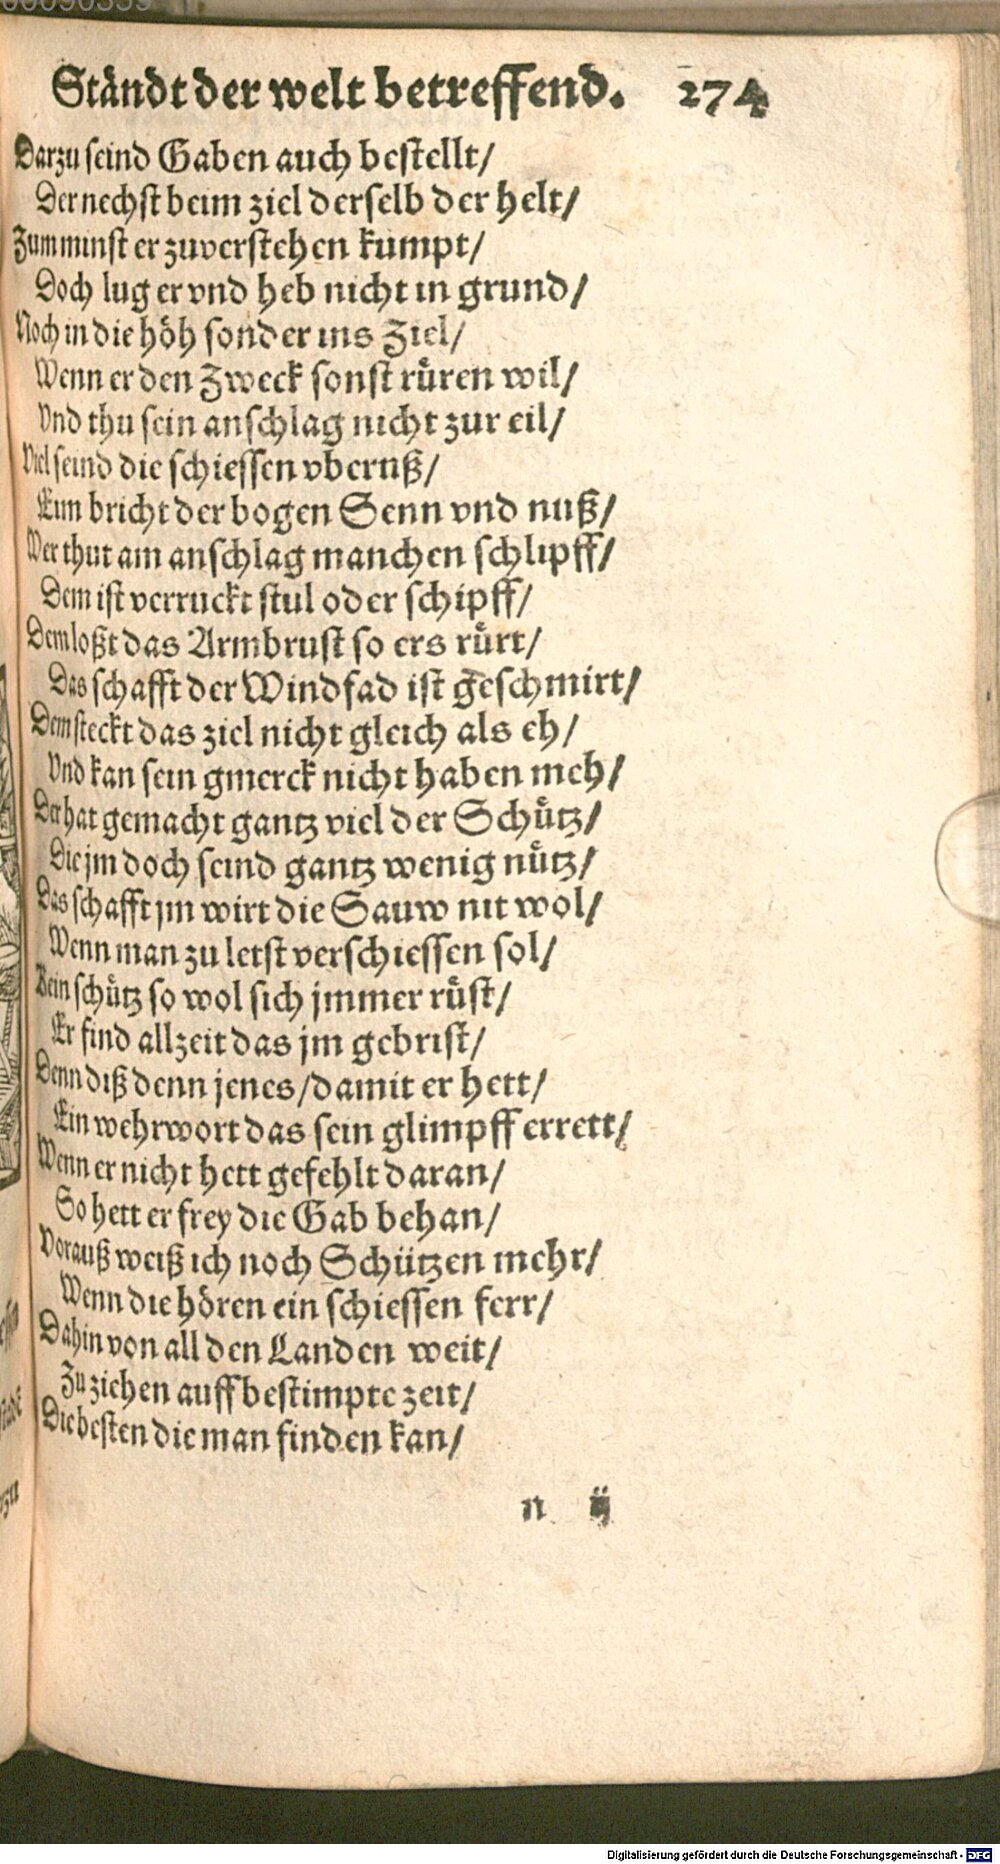 Ständt der welt betreffend. 274
Darzu seind Gaben auch bestellt/
Der nechst beim ziel derselb der helt/
Zum minst er zuverstehen kumpt/
Doch lug er vnd heb nicht in grund/
Noch in die höh sonder ins Ziel/
Wenn er den Zweck sonst rüren wil/
Vnd thu sein anschlag nicht zur eil/
Viel seind die schiessen vberuß/
Eim bricht der bogen Senn vnd nuß/
Wer thut am anschlag manchen schlipff/
Dem ist verruckt stul oder schipff/
Dem loßt das Armbrust so ers rürt/
Das schafft der Windfad ist geschmirt/
Dem steckt das ziel nicht gleich als eh/
Vnd kan sein gmerck nicht haben meh/
Der hat gemacht gantz viel der Schütz/
Die jm doch seind gantz wenig nütz/
Das schafft jm wirt die Sauw nit wol/
Wenn man zu letst verschiessen sol/
Kein schütz so wol sich jmmer rüst/
Er find allzeit das jm gebrist/
Denn diß denn jenes/damit er hett/
Ein wehrwort das sein glimpff errett/
Wenn er nicht hett gefehlt daran/
So hett er frey die Gab behan/
Vorauß weiß ich noch Schützen mehr/
Wenn die hören ein schiessen ferr/
Dahin von all den Landen weit/
Zu ziehen auff bestimpte zeit/
Die besten die man finden kan/
n ij
Digitalisierung gefördert durch die Deutsche Forschungsgemeinschaft - DFG